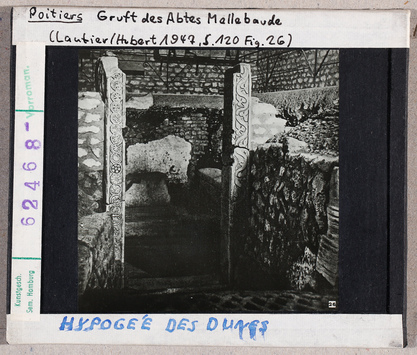 Poitiers Gruft des Abtes Mellebaude
(Lautier/Hubert 1947, S. 120 Fig. 26)
62468-
Vorroman.
Kunstgesch.
Sem. Hamburg
26
HYPOGEÉ DES DUNES